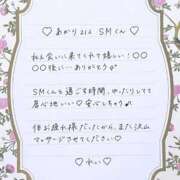 ♡ あかり212 SMくん ♡
私に会いに来てくれて嬉しい！○○
○○強い…ありがとう
SMくんと過ごす時間、ゆったりしてて
居心地いい♡安心しちゃう
体お疲れ様だったから、また沢山
マッサージさせてください♡
♡ れい ♡